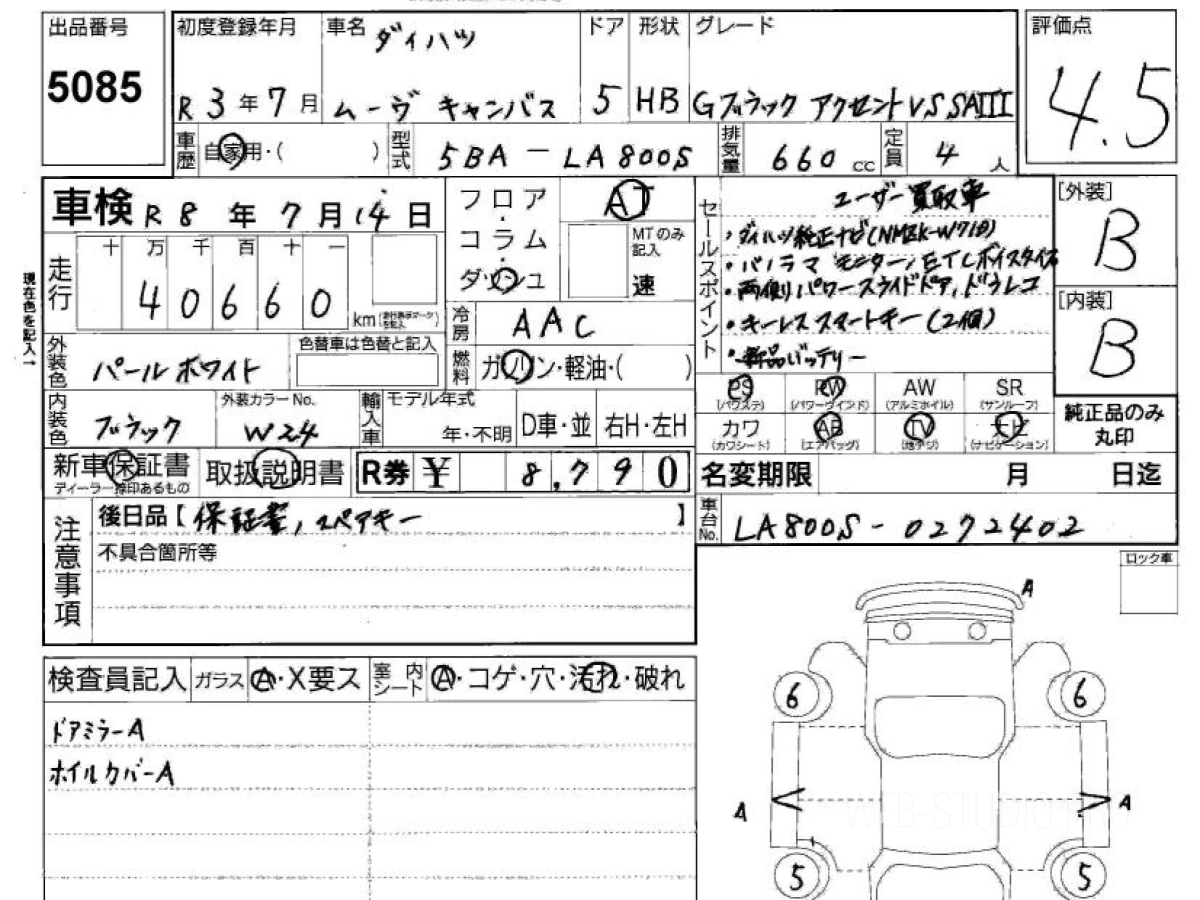 出品番号
5085
初度登録年月
R 3 年 7 月
車名
ダイハツ
ムーヴ キャンバス
ドア
5
形状
HB
グレード
Gブラック アクセントVS SAIII
評価点
4.5
車歴
自家用・( )
型式
5BA - LA800S
排気量
660 cc
定員
4 人
車検 R 8 年 7 月 14 日
走行
十 万 千 百 十 一
4 0 6 6 0
km
現在色を記入→
フロア
・
コラム
・
ダッシュ
AT
MTのみ
記入
速
冷房
AAC
燃料
ガソリン・軽油・( )
セールスポイント
ユーザー買取車
・ダイハツ純正ナビ(NMZK-W71D)
・パノラマ モニター/ETCボイスタイプ
・両側パワースライドドア/ドラレコ
・キーレススマートキー(2個)
・新品バッテリー
[外装]
B
[内装]
B
外装色
パールホワイト
色替車は色替と記入
内装色
ブラック
外装カラーNo.
W24
輸入車
モデル年式
年・不明
D車・並
右H・左H
PS
(パワステ)
PW
(パワーウインド)
AW
(アルミホイル)
SR
(サンルーフ)
カワ
(カワシート)
AB
(エアバッグ)
TV
(地デジ)
ナビ
(ナビゲーション)
純正品のみ
丸印
新車保証書
ディーラー捺印あるもの
取扱説明書
R券 ¥ 8,790
名変期限 月 日迄
注意事項
後日品【保証書, スペアキー 】
不具合箇所等
車台No.
LA800S - 0272402
ロック車
検査員記入
ガラス A・X要ス
室内シート A・コゲ・穴・汚れ・破れ
ドアミラーA
ホイルカバーA
A
6
6
A
A
5
5
WEB-STUDIO.PRO